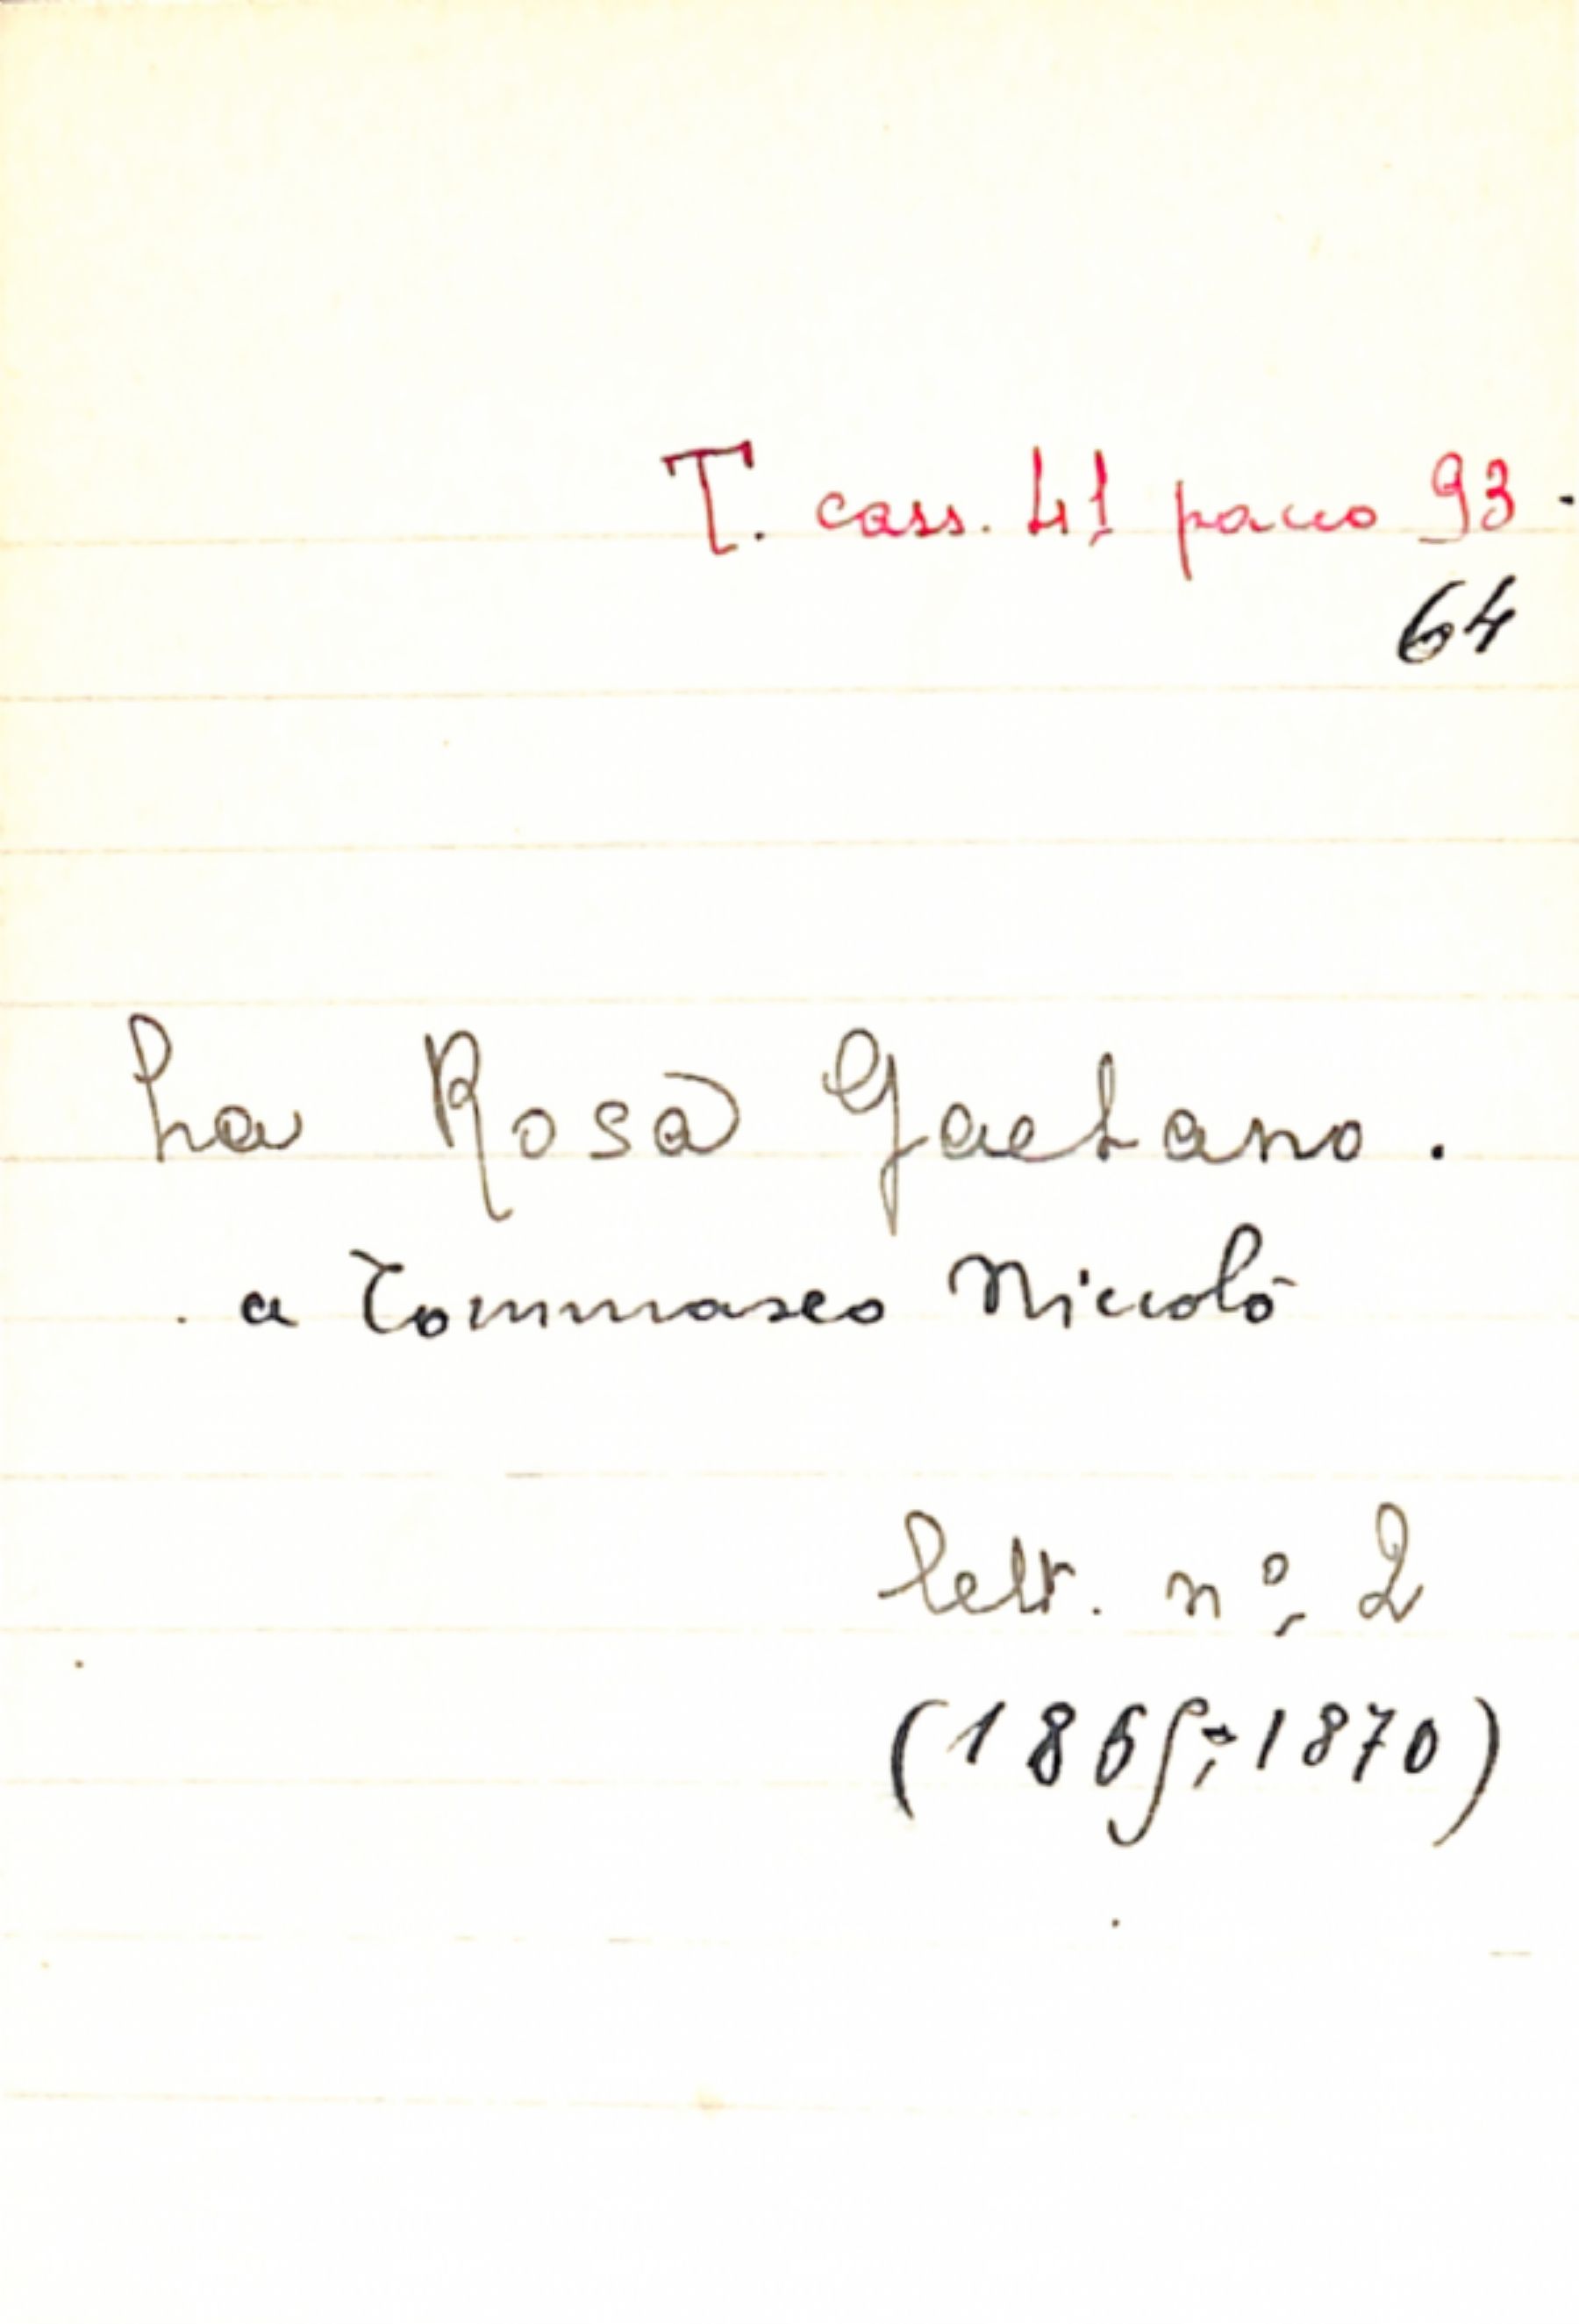 T. cass. 41 pacco 93.
64
La Rosa Gaetano.
a Tommaseo Niccolò
lett. n° 2
(1865; 1870)